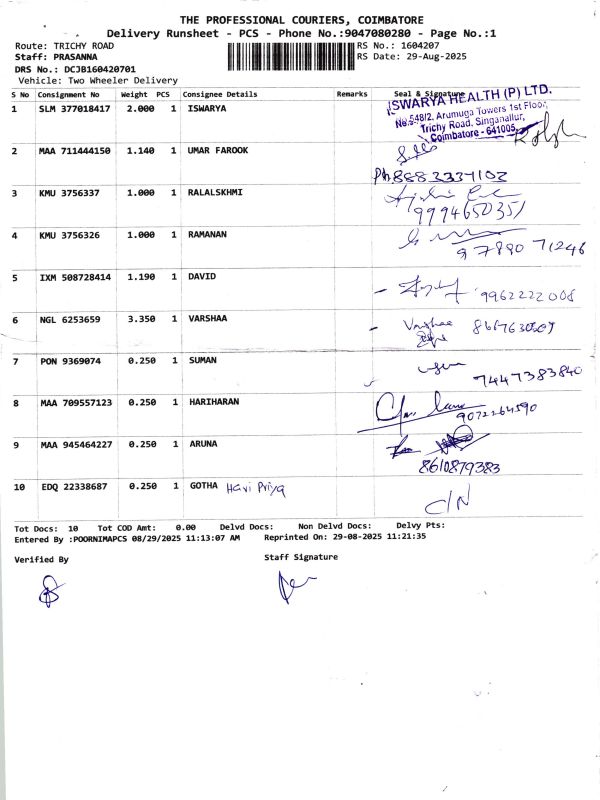 THE PROFESSIONAL COURIERS, COIMBATORE
Delivery Runsheet - PCS - Phone No.:9047080280 - Page No.:1
Route: TRICHY ROAD RS No.: 1604207
Staff: PRASANNA RS Date: 29-Aug-2025
DRS No.: DCJB160420701
Vehicle: Two Wheeler Delivery
S No Consignment No Weight PCS Consignee Details Remarks Seal & Signature
1 SLM 377018417 2.000 1 ISWARYA
ISWARYA HEALTH (P) LTD.
No.548/2, Arumuga Towers 1st Floor,
Trichy Road, Singanallur,
Coimbatore - 641005.
2 MAA 711444150 1.140 1 UMAR FAROOK
Ph 8883337102
3 KMU 3756337 1.000 1 RALALSKHMI
9994650351
4 KMU 3756326 1.000 1 RAMANAN
97890 71246
5 IXM 508728414 1.190 1 DAVID
9962222008
6 NGL 6253659 3.350 1 VARSHAA
Varshaa
7 PON 9369074 0.250 1 SUMAN
7447383840
8 MAA 709557123 0.250 1 HARIHARAN
9072264590
9 MAA 945464227 0.250 1 ARUNA
8610879383
10 EDQ 22338687 0.250 1 GOTHA Hari Priya
C/N
Tot Docs: 10 Tot COD Amt: 0.00 Delvd Docs: Non Delvd Docs: Delvy Pts:
Entered By :POORNIMAPCS 08/29/2025 11:13:07 AM Reprinted On: 29-08-2025 11:21:35
Verified By Staff Signature